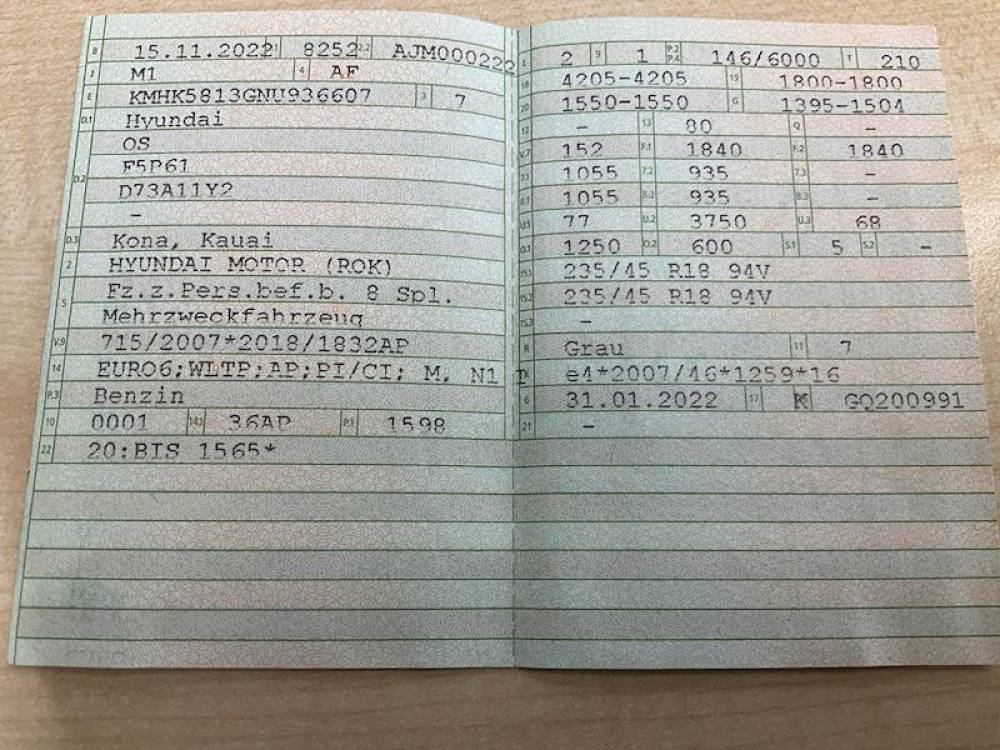 B 15.11.2022 2.1 8252 2.2 AJM000222
J M1 4 AF
E KMHK5813GNU936607 3 7
D.1 Hyundai
D.2 OS
F5P61
D73A11Y2
–
D.3 Kona, Kauai
2 HYUNDAI MOTOR (ROK)
5 Fz.z.Pers.bef.b. 8 Spl.
Mehrzweckfahrzeug
V.9 715/2007*2018/1832AP
14 EURO6;WLTP;AP;PI/CI; M, N1 I
P.3 Benzin
10 0001 14.1 36AP P.1 1598
22 20:BIS 1565*
L 2 9 1 P.2 P.4 146/6000 T 210
18 4205-4205 19 1800-1800
20 1550-1550 G 1395-1504
12 – 13 80 Q –
V.7 152 F.1 1840 F.2 1840
7.1 1055 7.2 935 7.3 –
8.1 1055 8.2 935 8.3 –
U.1 77 U.2 3750 U.3 68
O.1 1250 O.2 600 S.1 5 S.2 –
15.1 235/45 R18 94V
15.2 235/45 R18 94V
15.3 –
R Grau 11 7
K e4*2007/46*1259*16
6 31.01.2022 17 K 16 GQ200991
21 –